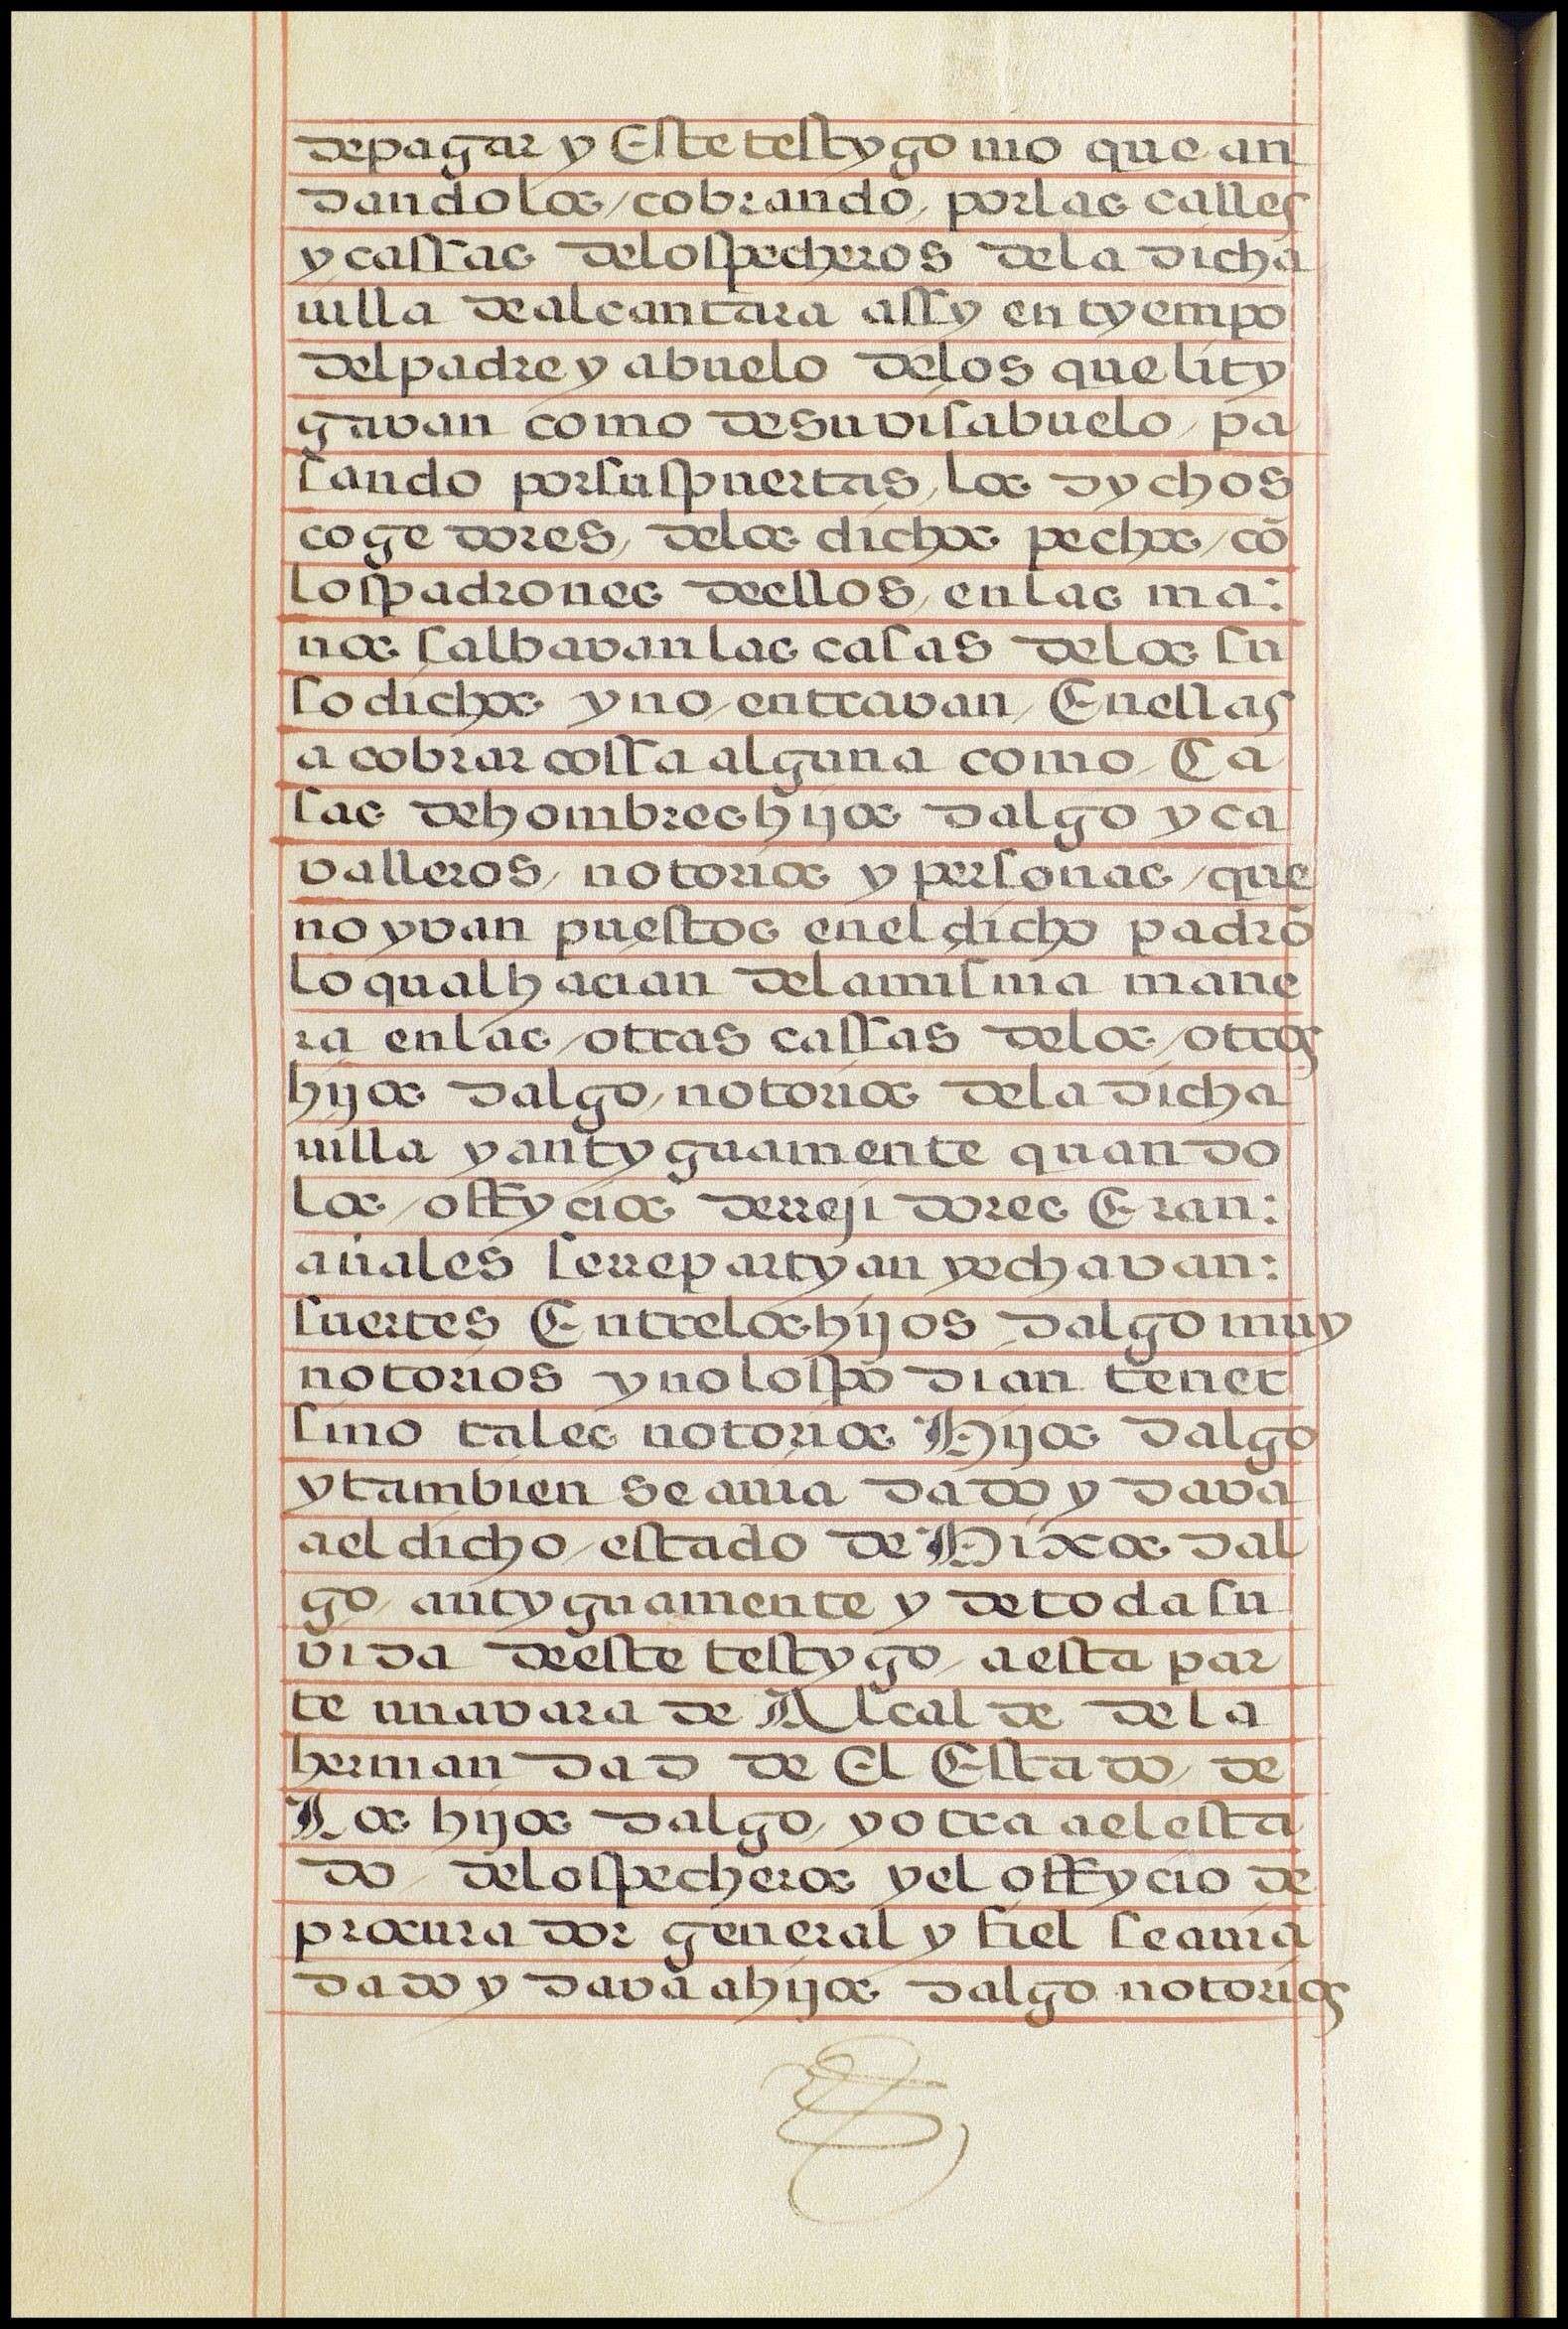 depagar y Este testygo uio que an
dandolos / cobrando / por las calles
y cassas delos pecheros dela dicha
uilla de alcantara assy en tyempo
del padre y abuelo delos que lity
gavan como de su visabuelo / pa
sando por sus puertas / los dychos
cogedores / delos dichos pechos / cō
los padrones dellos / en las ma:
nos salbavan las casas delos su
sodichos y no / entravan / En ellas
a cobrar cossa alguna como / Ca
sas de hombres hijos dalgo y ca
valleros / notorios y personas / que
no yvan puestos enel dicho padrō
lo qual hacian dela misma mane
ra en las / otras cassas delos / otros
hijos dalgo / notorios dela dicha
uilla y antyguamente quando
los / offycios de rrejidores Eran:
añales se rrepartyan y echavan:
suertes Entre los hijos dalgo muy
notorios y no los podian tener
sino tales notorios Hijos dalgo
y tambien se auia dado y dava
a el dicho / estado de Hixos dal
go / antyguamente y de toda su
vida deeste testygo / a esta par
te una vara de Alcalde de la
hermandad de El Estado / de
Los hijos dalgo / y otra a el esta
do / delos pecheros y el offycio de
procurador general y fiel se auia
dado y dava a hijos dalgo notorios